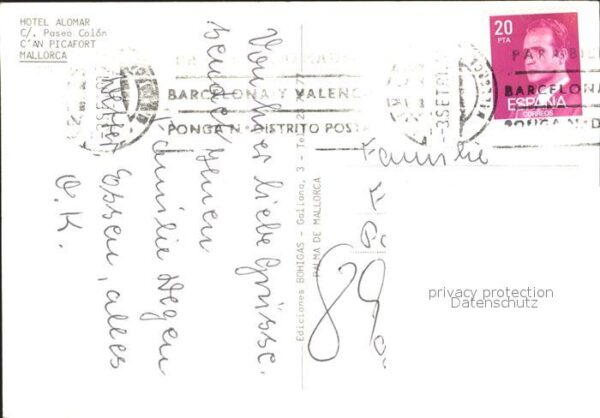 HOTEL ALOMAR
C/. Paseo Colón
C'AN PICAFORT
MALLORCA
Von hier liebe Grüsse.
sendet Ihnen
Familie Degen
Wetter, Essen, alles
O.K.
Ediciones BOHIGAS - Galiana, 3 - Tel.
PALMA DE MALLORCA
BARCELONA Y VALENC
PONGA N.º DISTRITO POSTA
3 SET
20
PTA
BARCELONA
ESPAÑA
CORREOS
PONGA N.º D
Familie
F
89
privacy protection
Datenschutz